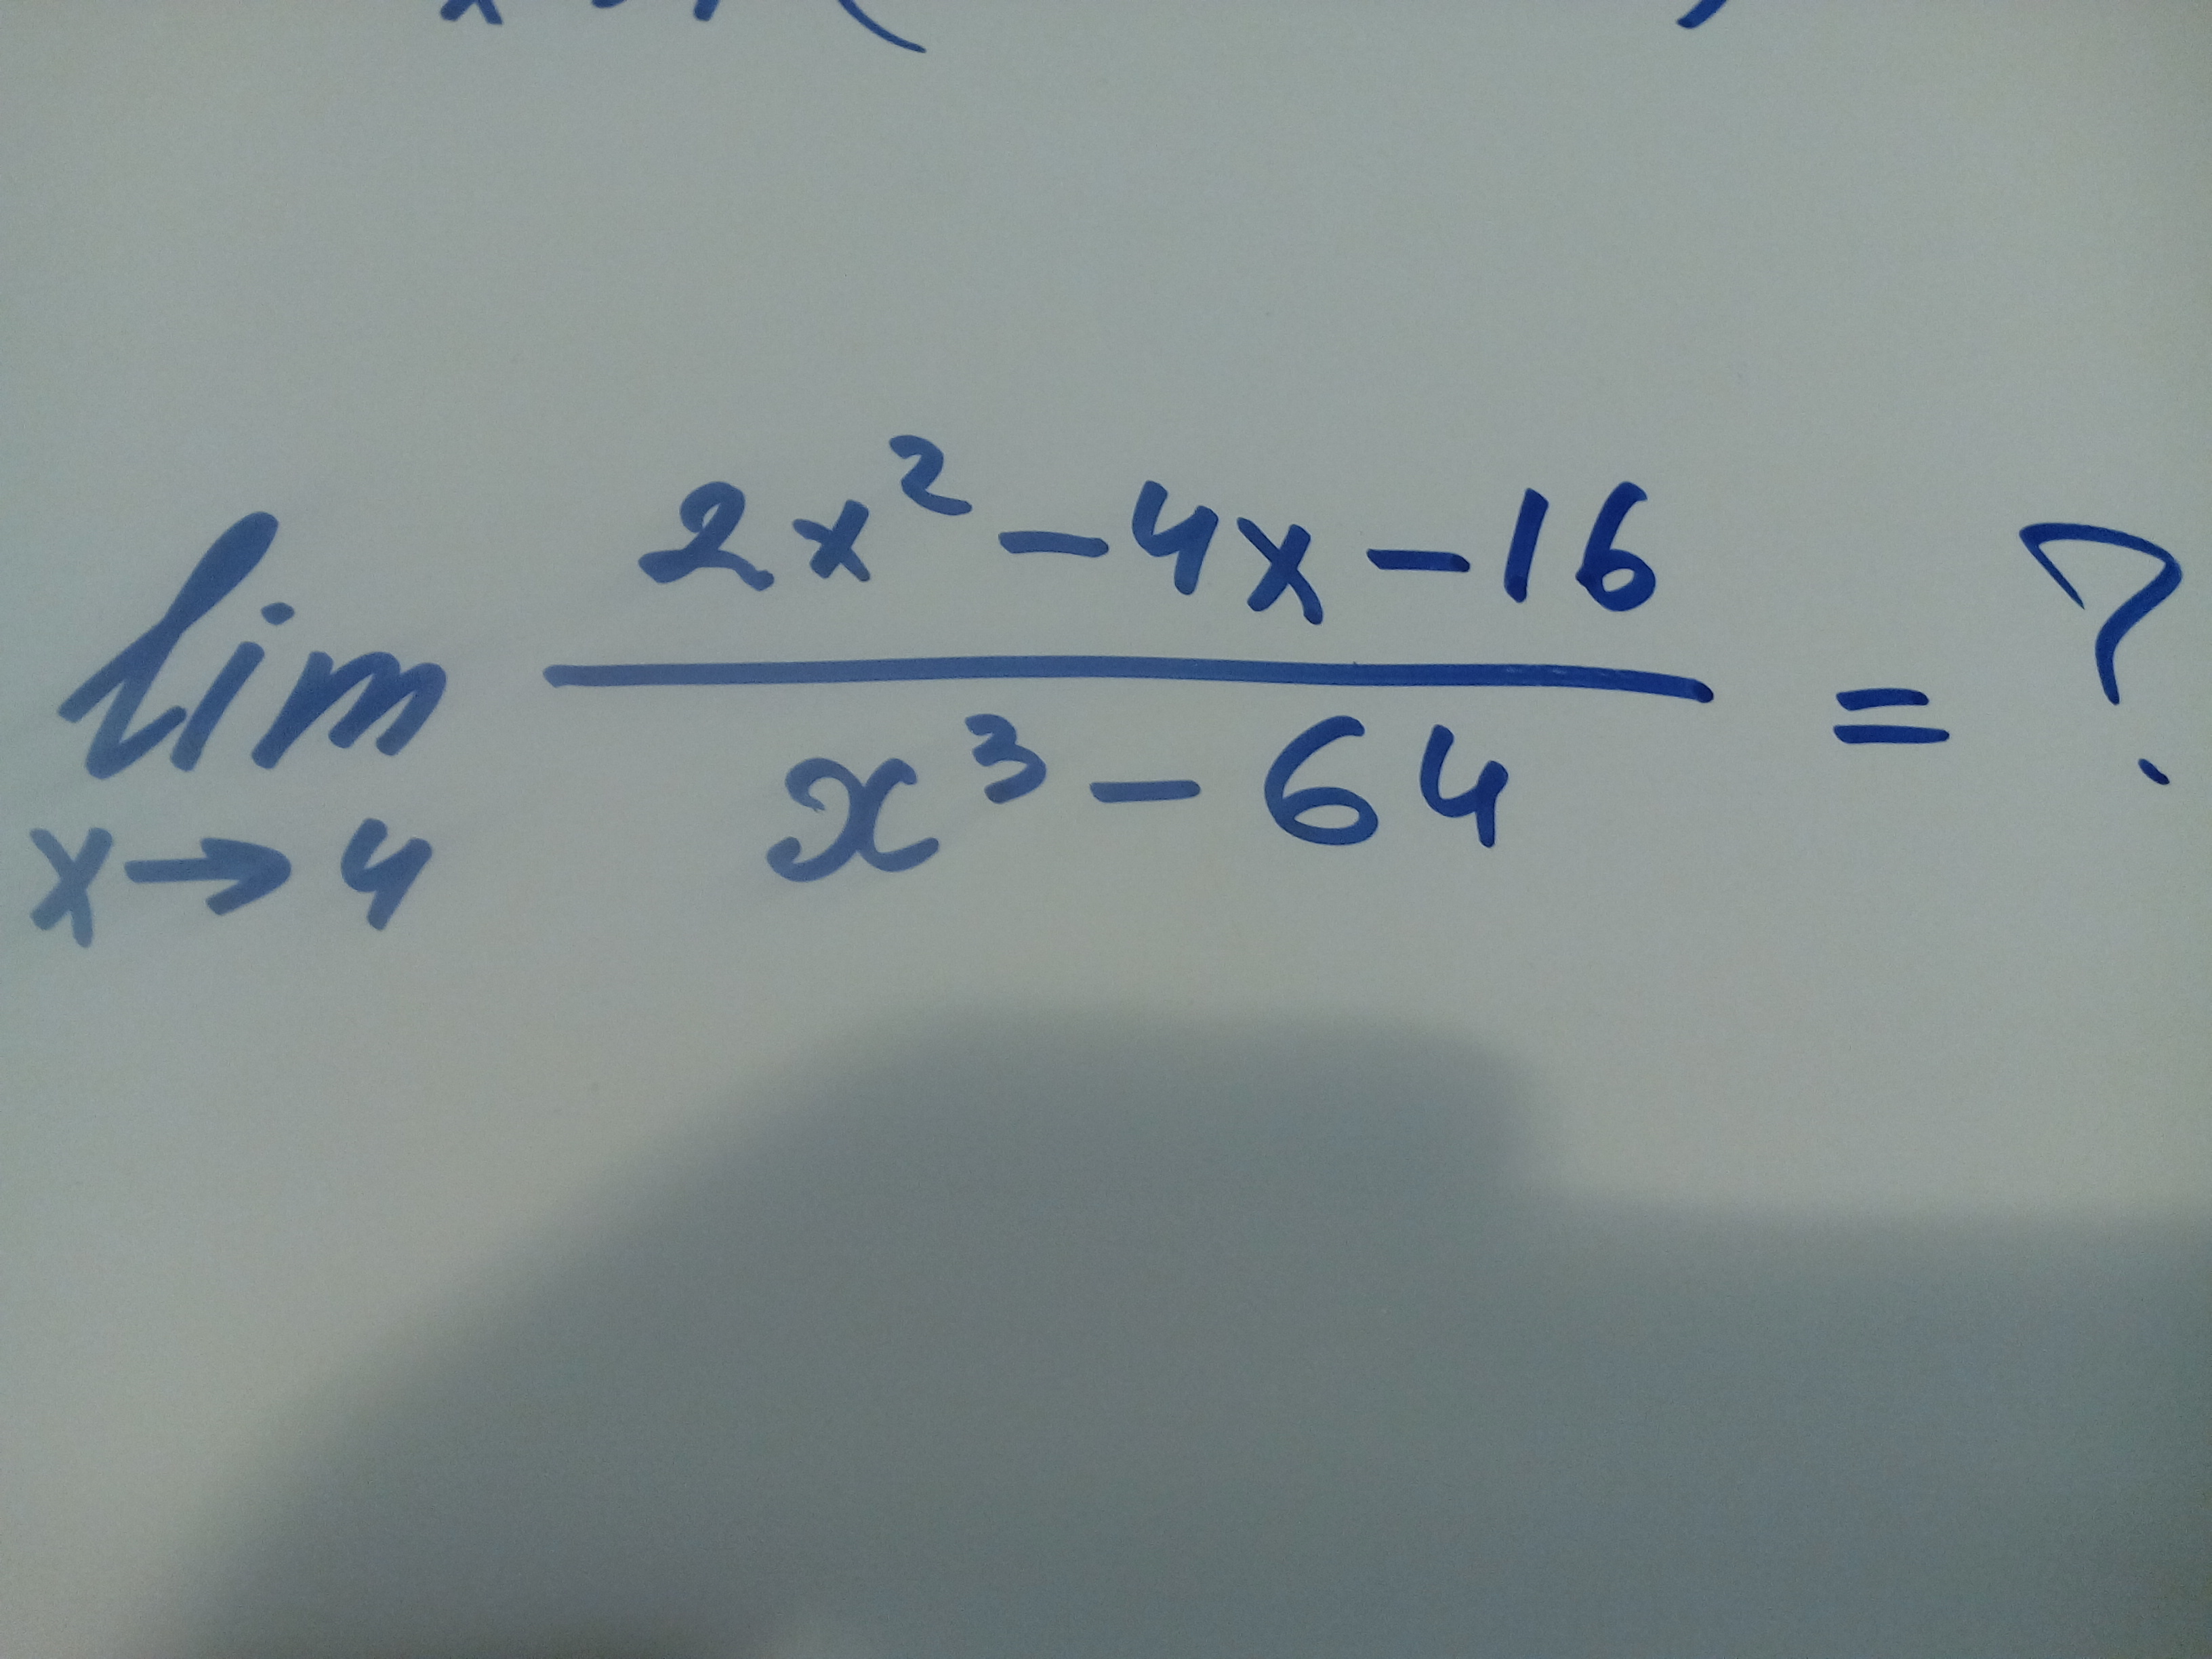 lim x→4 (2x² - 4x - 16) / (x³ - 64) = ?